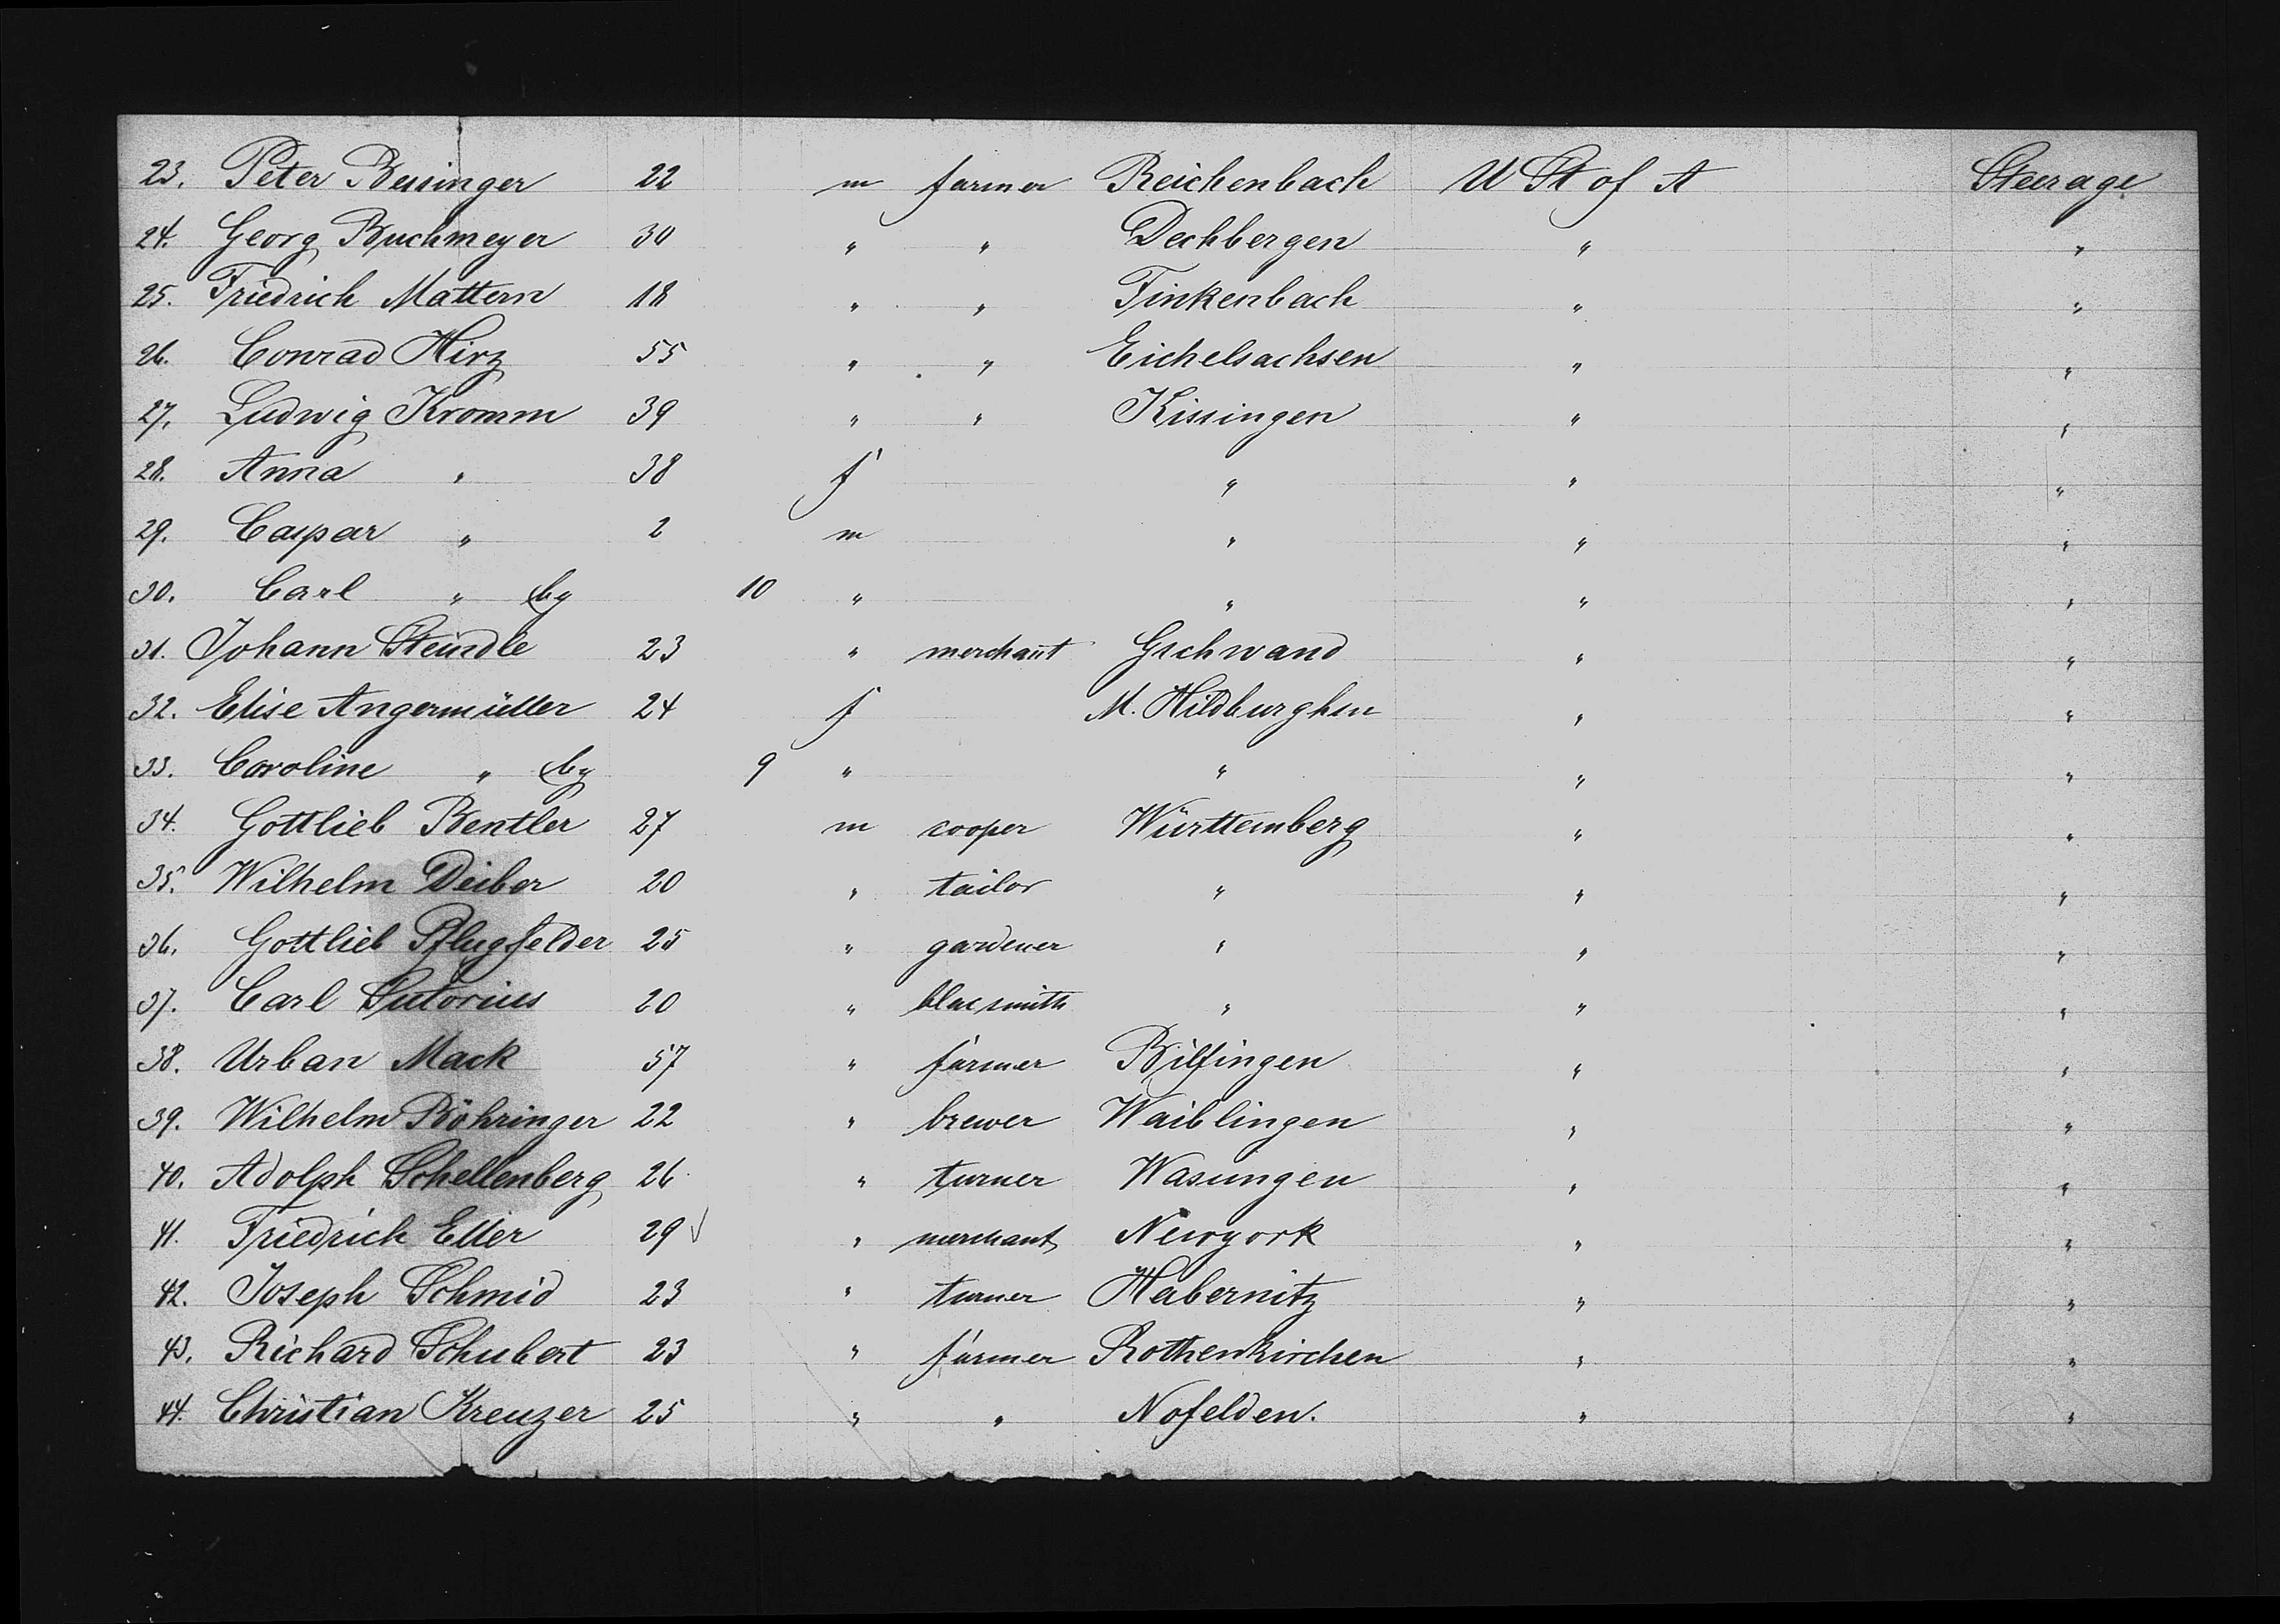 23. Peter Beisinger 22 m farmer Reichenbach U St of A Steerage
24. Georg Buchmeyer 30 " " Deckbergen " "
25. Friedrich Mattern 18 " " Finkenbach " "
26. Conrad Hirz 55 " " Eichelsachsen " "
27. Ludwig Kromm 39 " " Kissingen " "
28. Anna " 38 f " " "
29. Caspar " 2 m " " "
30. Carl " by 10 " " " "
31. Johann Steindle 23 " merchant Gschwand " "
32. Elise Angermüller 24 f M. Hildburghsn " "
33. Caroline " by 9 " " " "
34. Gottlieb Bentler 27 m cooper Württemberg " "
35. Wilhelm Deiber 20 " tailor " " "
36. Gottlieb Pflugfelder 25 " gardener " " "
37. Carl Sutorius 20 " blacsmith " " "
38. Urban Mack 57 " farmer Bilfingen " "
39. Wilhelm Böhringer 22 " brewer Waiblingen " "
40. Adolph Schellenberg 26 " turner Wasungen " "
41. Friedrich 29 " merchant Newyork " "
42. Joseph Schmid 23 " turner Habernitz " "
43. Richard Schubert 23 " farmer Rothenkirchen " "
44. Christian Kreuzer 25 " " Nofelden. " "